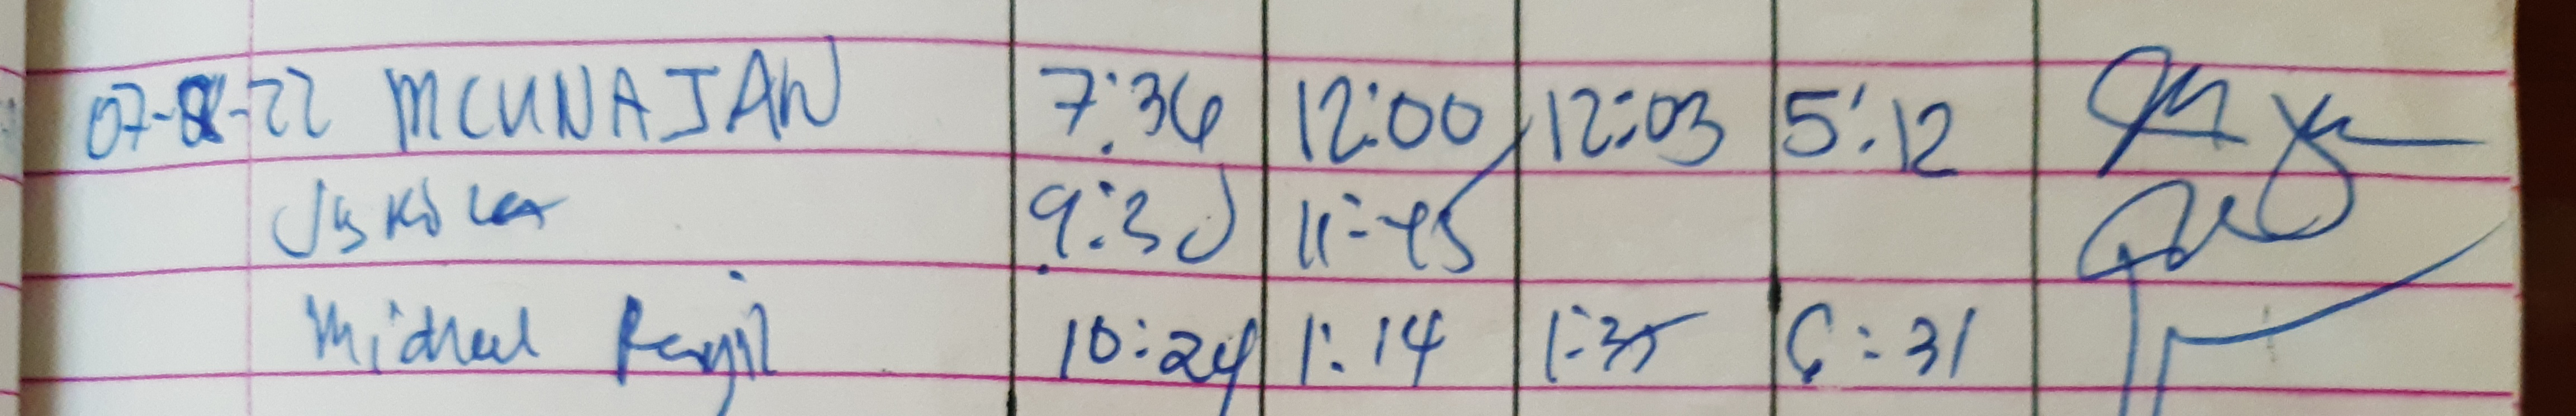 07- -22 MCUNAJAN 7:36 12:00 12:03 5:12
9:30 11:45
Michael 10:24 1:14 1:35 6:31